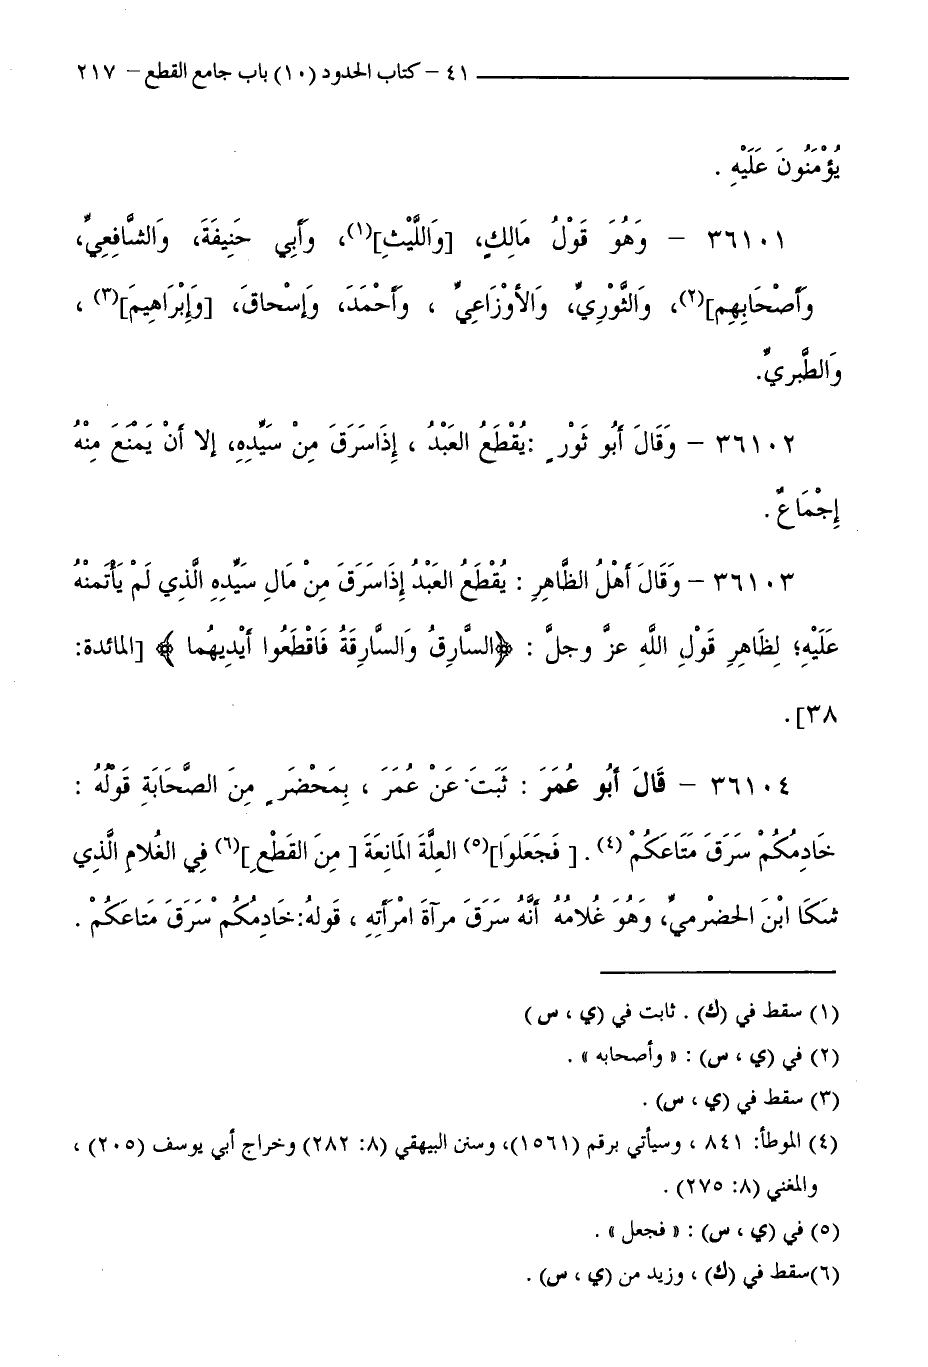 ٤١ – كتاب الحدود (١٠) باب جامع القطع – ٢١٧
يُؤْمَنُونَ عَلَيْهِ .
٣٦١٠١ – وَهُوَ قَوْلُ مَالِكٍ، [وَاللَّيْثِ](١)، وَأَبِي حَنِيفَةَ، وَالشَّافِعِيِّ،
وَأَصْحَابِهِم](٢)، وَالثَّوْرِيِّ، وَالأوْزَاعِيِّ ، وَأَحْمَدَ، وَإِسْحاقَ، [وَإِبْرَاهِيمَ](٣) ،
وَالطَّبريِّ.
٣٦١٠٢ – وَقَالَ أَبُو ثَوْرٍ :يُقْطَعُ العَبْدُ ، إِذَاسَرَقَ مِنْ سَيِّدِهِ، إِلا أَنْ يَمْنَعَ مِنْهُ
إِجْمَاعٌ .
٣٦١٠٣ – وَقَالَ أَهْلُ الظَّاهِرِ : يُقْطَعُ العَبْدُ إِذَاسَرَقَ مِنْ مَالِ سَيِّدِهِ الَّذِي لَمْ يَأْتَمنْهُ
عَلَيْهِ؛ لِظَاهِرِ قَوْلِ اللَّهِ عزَّ وجلَّ : ﴿السَّارِقُ وَالسَّارِقَةُ فَاقْطَعُوا أَيْدِيهُما ﴾ [المائدة:
٣٨] .
٣٦١٠٤ – قَالَ أَبُو عُمَرَ : ثَبَتَ عَنْ عُمَرَ ، بِمَحْضَرٍ مِنَ الصَّحَابَةِ قَوْلُهُ :
خَادِمُكُمْ سَرَقَ مَتَاعَكُمْ (٤) . [ فَجَعَلوَا](٥) العِلَّةَ المَانِعَةَ [ مِنَ القَطْعِ](٦) فِي الغُلامِ الَّذِي
شكَا ابْنَ الحَضْرميِّ، وَهُوَ غُلامُهُ أَنَّهُ سَرَقَ مرآةَ امْرَأَتِهِ ، قَولهُ:خَادِمُكُم ْسَرَقَ مَتاعَكُمْ .
(١) سقط في (ك) . ثابت في (ي ، س )
(٢) في (ي ، س) : « وأصحابه » .
(٣) سقط في (ي ، س) .
(٤) الموطأ: ٨٤١ ، وسيأتي برقم (١٥٦١)، وسنن البيهقي (٨: ٢٨٢) وخراج أبي يوسف (٢٠٥) ،
والمغني (٨: ٢٧٥) .
(٥) في (ي ، س) : « فجعل » .
(٦)سقط في (ك) ، وزيد من (ي ، س) .